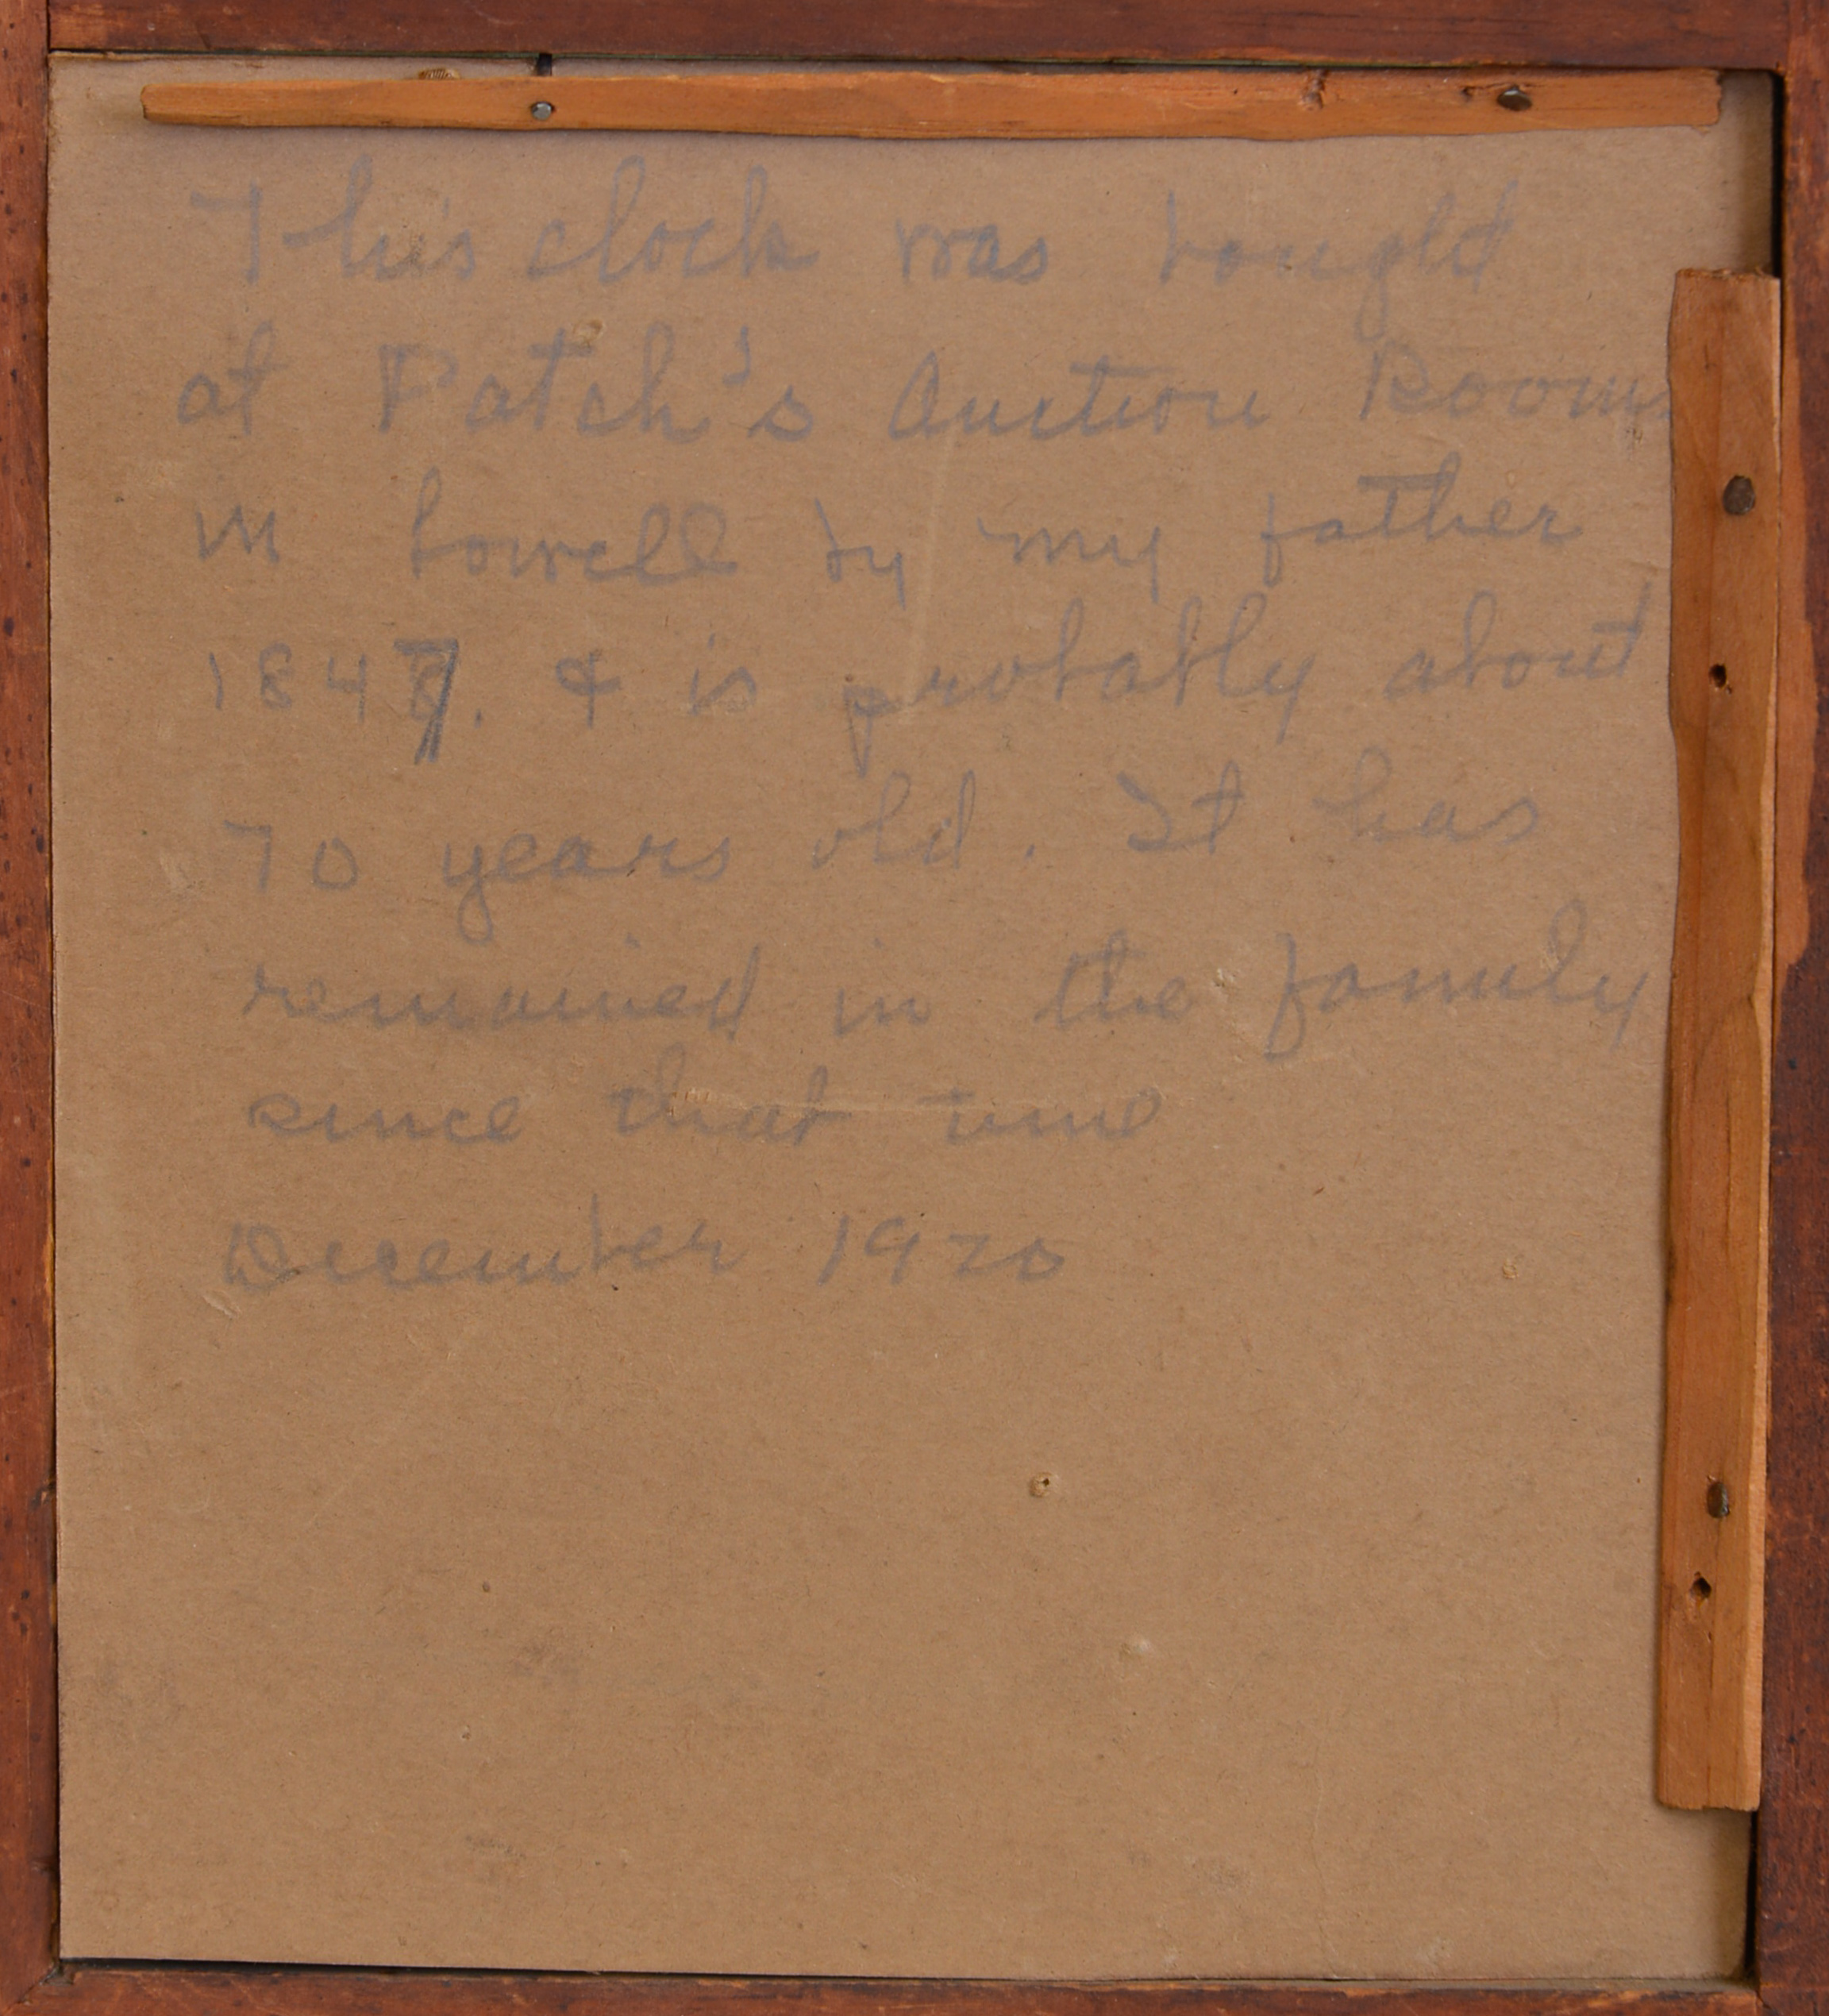 This clock was bought
at Patch's Auction Rooms
in Lowell by my father
1847. & is probably about
70 years old. It has
remained in the family
since that time
December 1920